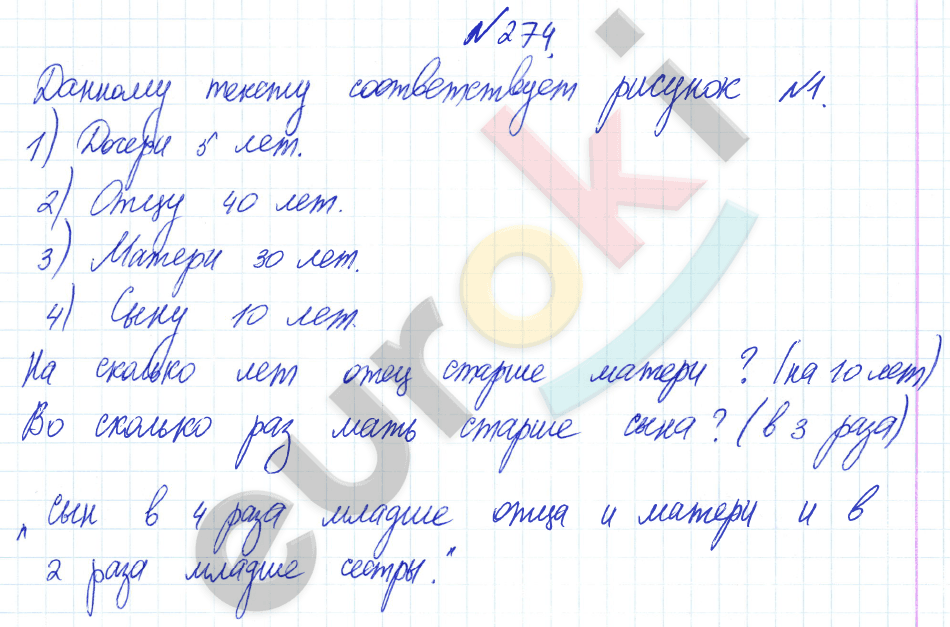 №274.
Данному тексту соответствует рисунок №1.
1) Дочери 5 лет.
2) Отцу 40 лет.
3) Матери 30 лет.
4) Сыну 10 лет.
На сколько лет отец старше матери? (на 10 лет)
Во сколько раз мать старше сына? (в 3 раза)
„Сын в 4 раза младше отца и матери и в
2 раза младше сестры."
euroki